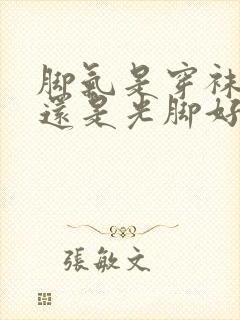 脚氣是穿袜
還是光脚好
張敏文